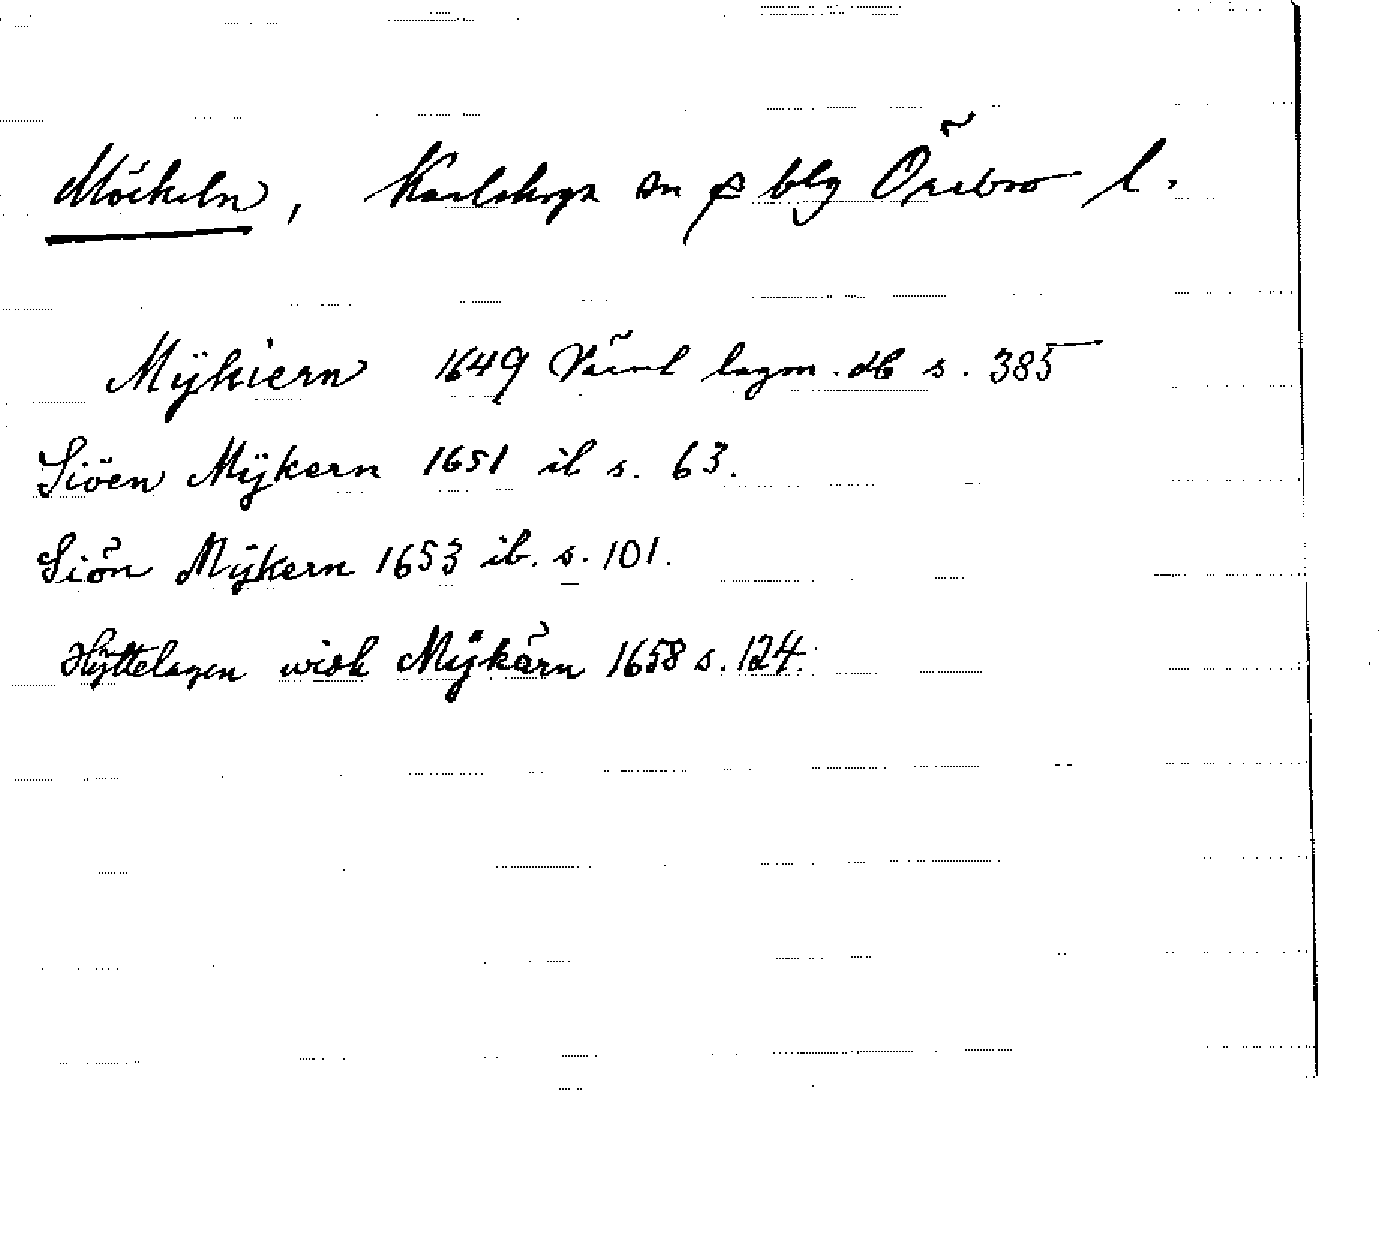 Möckeln, Karlskoga sn & blg Örebro l.
Mÿkiern 1649 Värml lagm. db s. 385
Siöen Mÿkern 1651 ib s. 63.
Siön Mÿkern 1653 ib. s. 101.
Hÿttelagen widh Mÿkärn 1658 s. 124.